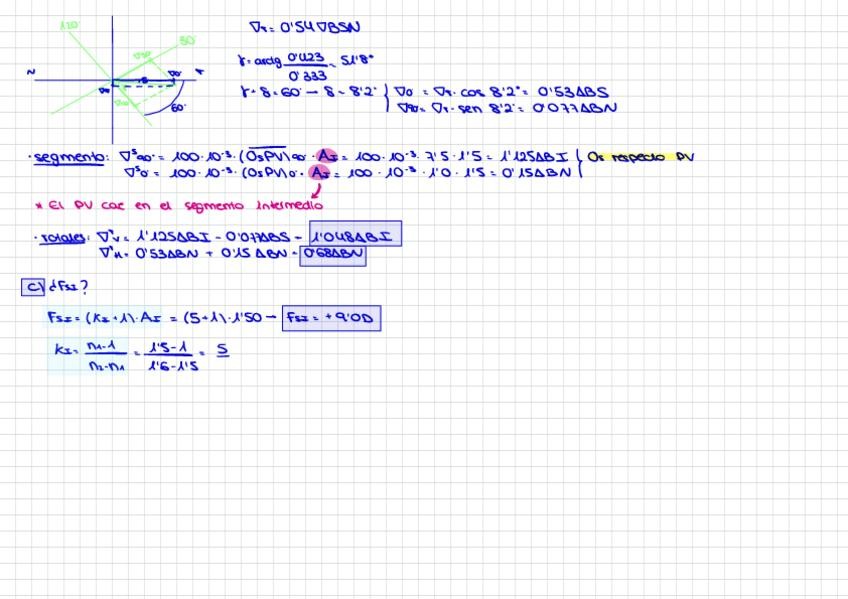 ∇r = 0'54 ∇BSN
120°
30°
N
T
60°
γ = arctg 0'423 / 0'333 = 51'8°
γ + δ = 60° → δ = 8'2°
∇0° = ∇r · cos 8'2° = 0'53ΔBS
∇90° = ∇r · sen 8'2° = 0'077ΔBN
· segmento: ∇ˢ90° = 100·10⁻³ · (OsPV)90° · AI = 100·10⁻³ · 7'5 · 1'5 = 1'125ΔBI
∇ˢ0° = 100·10⁻³ · (OsPV)0° · AI = 100·10⁻³ · 1'0 · 1'5 = 0'15ΔBN
Os respecto PV
* El PV cae en el segmento intermedio
· Totales: ∇ᵀV = 1'125ΔBI - 0'077ΔBS = 1'048ΔBI
∇ᵀH = 0'53ΔBN + 0'15ΔBN = 0'68ΔBN
c) ¿FSI?
FSI = (KI + 1) · AI = (5 + 1) · 1'50 → FSI = +9'0D
KI = n1 - 1 / n2 - n1 = 1'5 - 1 / 1'6 - 1'5 = 5